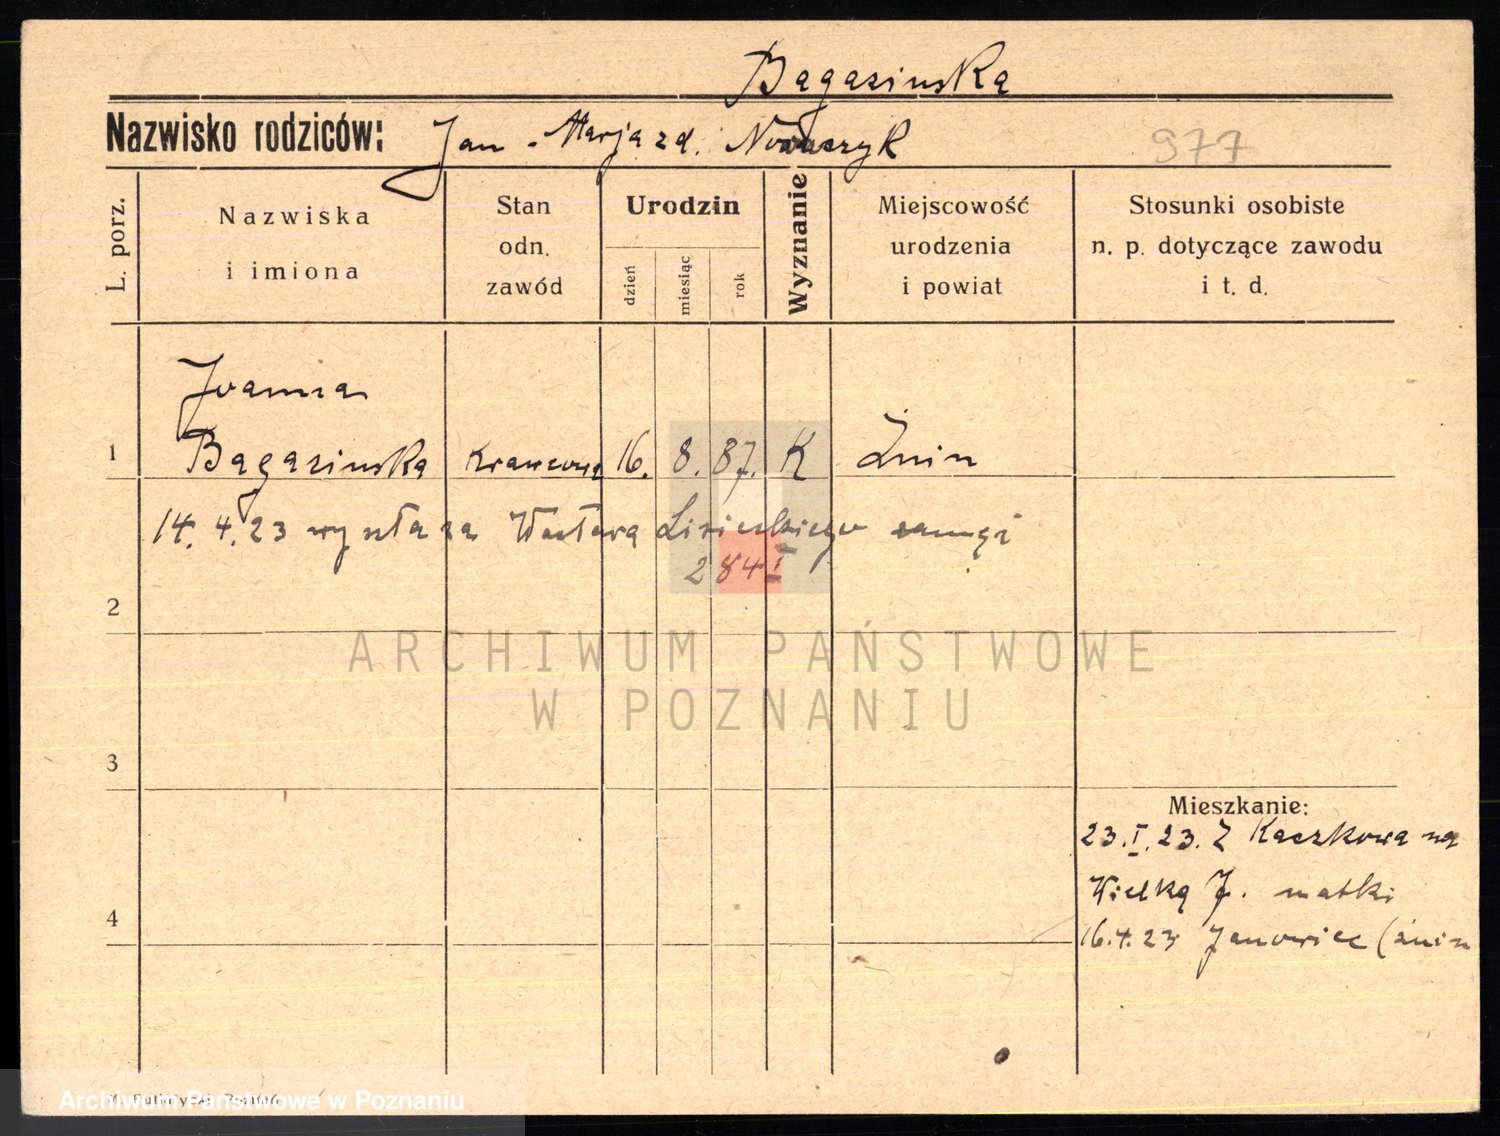 Bągasińska
Nazwisko rodziców: Jan - Marja zd. Nowaczyk
977
L. porz.
Nazwiska
i imiona
Stan
odn.
zawód
Urodzin
dzień
miesiąc
rok
Wyznanie
Miejscowość
urodzenia
i powiat
Stosunki osobiste
n. p. dotyczące zawodu
i t. d.
Joanna
1 Bągasińska Krawcowa 16. 8. 87. K Żnin
14. 4. 23 wyszła za Wacława Lisieckiego zamąż
284 I
2
ARCHIWUM PAŃSTWOWE
W POZNANIU
3
Mieszkanie:
23. I. 23. Z Kaczkowa na
Wielką 7. matki
4
16.4.23 Janowiec (żnin
Archiwum Państwowe w Poznaniu